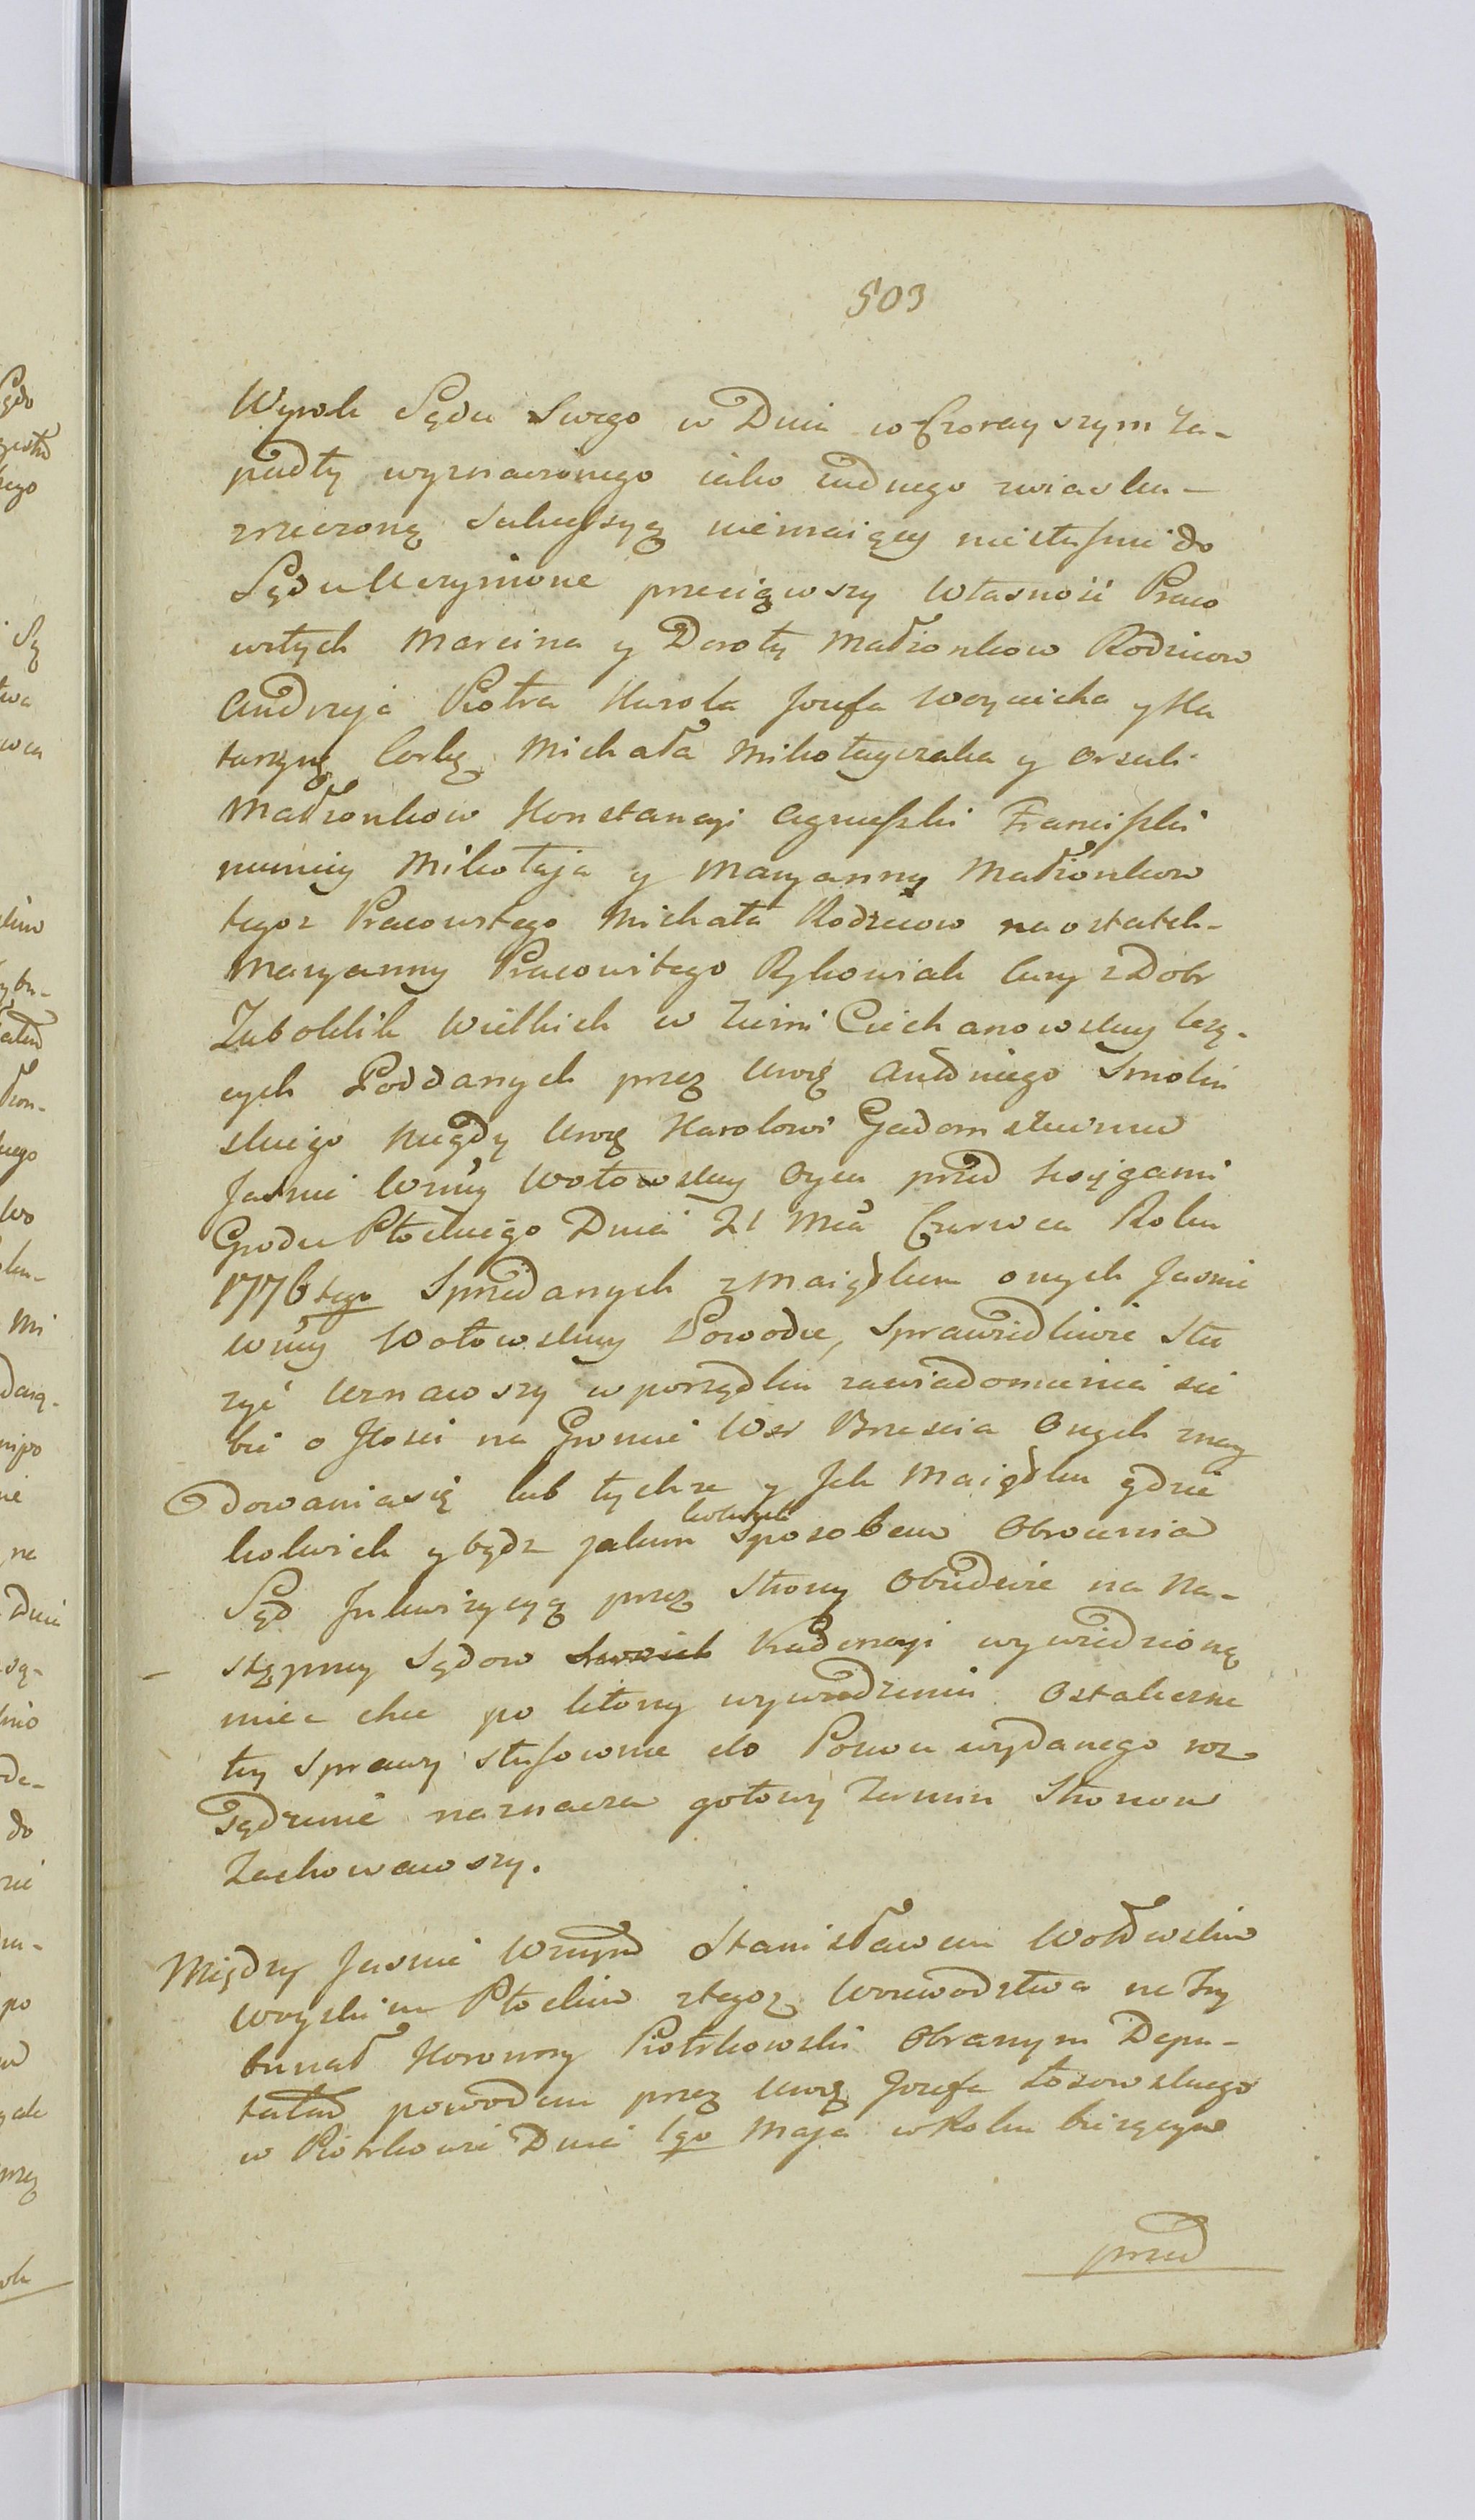 503
Wyrok Sądu Swego w Dniu wczorayszym za-
padły wyznaczonego iako żadnego związku
z rzeczoną Sukcessyą niemaiący niesłusznie do
Sądu Uczynione przeciąwszy Własność Praco
witych Marcina y Doroty Małżonkow Rodzicow
Andrzeja Piotra Karola Jozefa Woyciecha y Ka
tarzynę Corkę Michała Mikołayczaka y Orsuli
Małżonkow Konstancyi Agnieszki Franciszki
niemniey Mikołaja y Maryanny Małżonkow
tegoz Pracowitego Michała Rodzicow na ostatek
Maryanny Pracowitego Rykowiak Cory z Dobr
Zuboklik Wielkich w Ziemi Ciechanowskiey leżą-
cych Poddanych przez Urog Antoniego Smoliń
skiego niegdy Urog Karolowi Gadomskiemu
Jasnie Wney Wołowskiey Oycu przed księgami
Grodu Płockiego Dnia 21 Mca Czerwca Roku
1776tego Sprzedanych z Maiątkiem onych Jasnie
Wney Wołowskiey Powodce, Sprawiedliwie Słu
żyć Uznawszy w porządku zawiadomienia sie
bie o Ilości na Groncie Wsi Brzescia Onych znay
dowania się lub tychze y Ich Maiątku gdzie
kolwiek y bądz jakim kolwiek Sposobem Obrocenia
Sąd Inkwizycyą przez Strony Obiedwie na Na-
stępney Sądow Swoich Kadencyi wywiedzioną
miec chce po ktorey wywiedzeniu Ostateczne
tey Sprawy stosownie do Pozwu wydanego roz
sądzenie naznacza gotowy Termin Stronom
Zachowawszy.
Między Jasnie Wnym Stanisławem Wołowskim
Woyskim Płockim ztegoz Wojewodztwa na Try
bunał Koronny Piotrkowski Obranym Depu-
tatem powodem przez Urog Jozefa Łosowskiego
w Piotrkowie Dnia 1go Maja w Roku bieżącym
przed